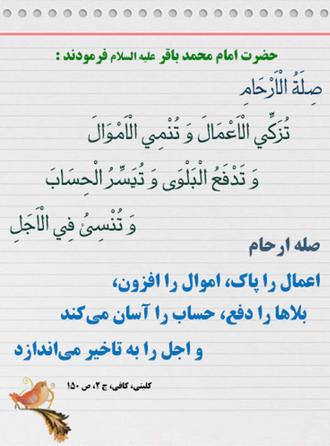 حضرت امام محمد باقر علیه السلام فرمودند :
صِلَةُ الْأَرْحَامِ
تُزَكِّي الْأَعْمَالَ وَ تُنْمِي الْأَمْوَالَ
وَ تَدْفَعُ الْبَلْوَى وَ تُيَسِّرُ الْحِسَابَ
وَ تُنْسِئُ فِي الْأَجَلِ
صله ارحام
اعمال را پاک، اموال را افزون،
بلاها را دفع، حساب را آسان می‌کند
و اجل را به تاخیر می‌اندازد
کلینی، کافی، ج ۲، ص ۱۵۰